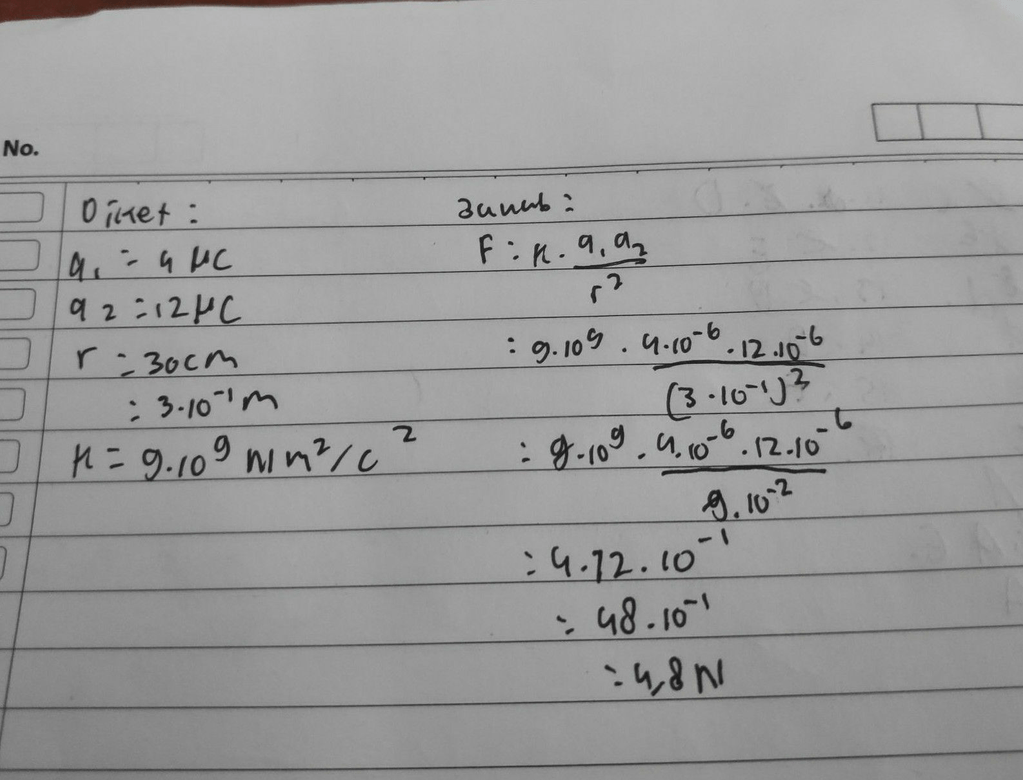 No.
Diket :
q1 = 4 μC
q2 = 12 μC
r = 30cm
= 3·10⁻¹ m
k = 9.10⁹ Nm²/c²
Jawab :
F = k . q1 q2 / r²
= 9.10⁹ . 4.10⁻⁶ . 12.10⁻⁶ / (3·10⁻¹)²
= 9.10⁹ . 4.10⁻⁶ . 12.10⁻⁶ / 9.10⁻²
= 4.12.10⁻¹
= 48.10⁻¹
= 4,8 N